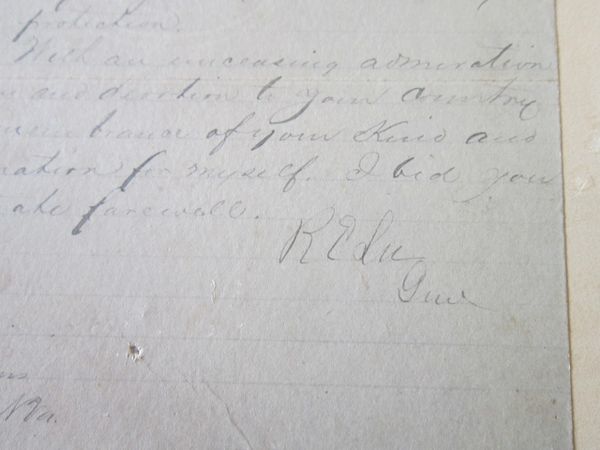 protection.
With an unceasing admiration
and devotion to your country
embrance of your Kind and
ration for myself. I bid you
ate farewell.
R E Lee
Genl
N Va.